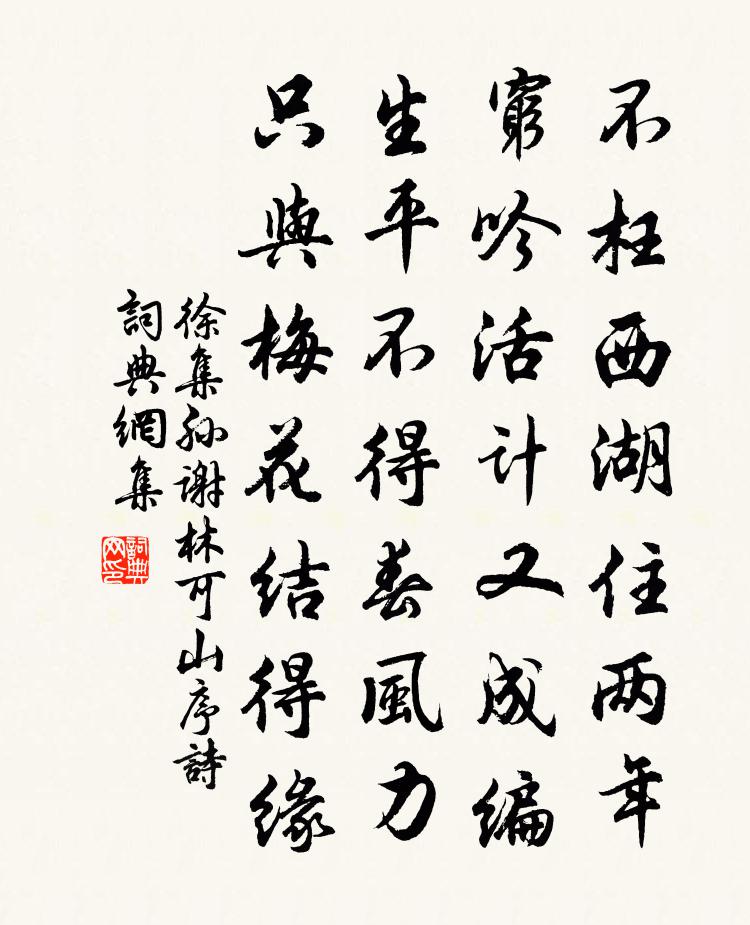 不枉西湖住两年
窮吟活计又成編
生平不得春風力
只與梅花结得缘
徐集孙謝林可山序詩
詞典網集
詞典网印